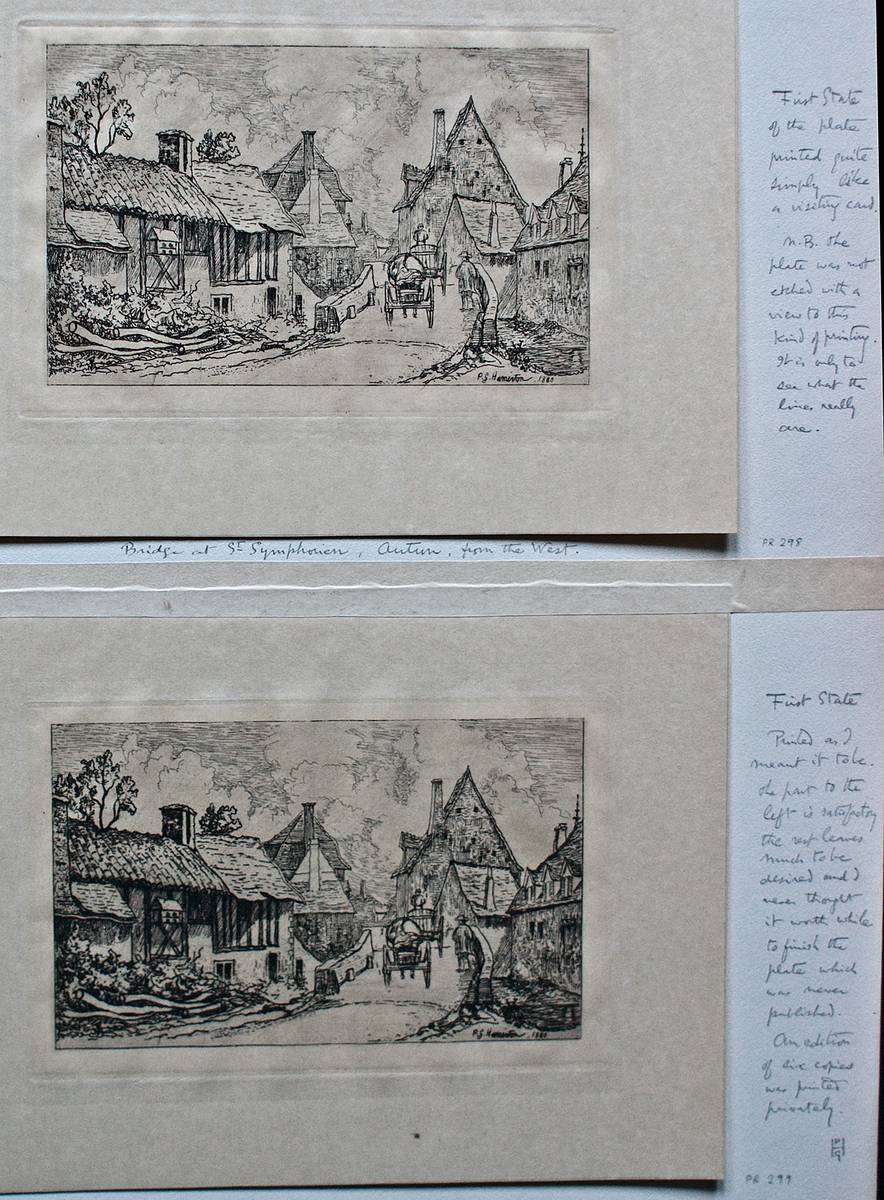 First State
of the plate
printed quite
simply like
a visiting card.
N.B. the
plate was not
etched with a
view to this
kind of printing.
It is only to
see what the
lines really
are.
P.G. Hamerton. 1880
PR 298
Bridge at St Symphorien, Autun, from the West.
First State
Printed as I
meant it to be.
The part to the
left is satisfactory
the rest leaves
much to be
desired and I
never thought
it worth while
to finish the
plate which
was never
published.
An edition
of six copies
was printed
privately.
P.G. Hamerton. 1880
PHG
PR 299